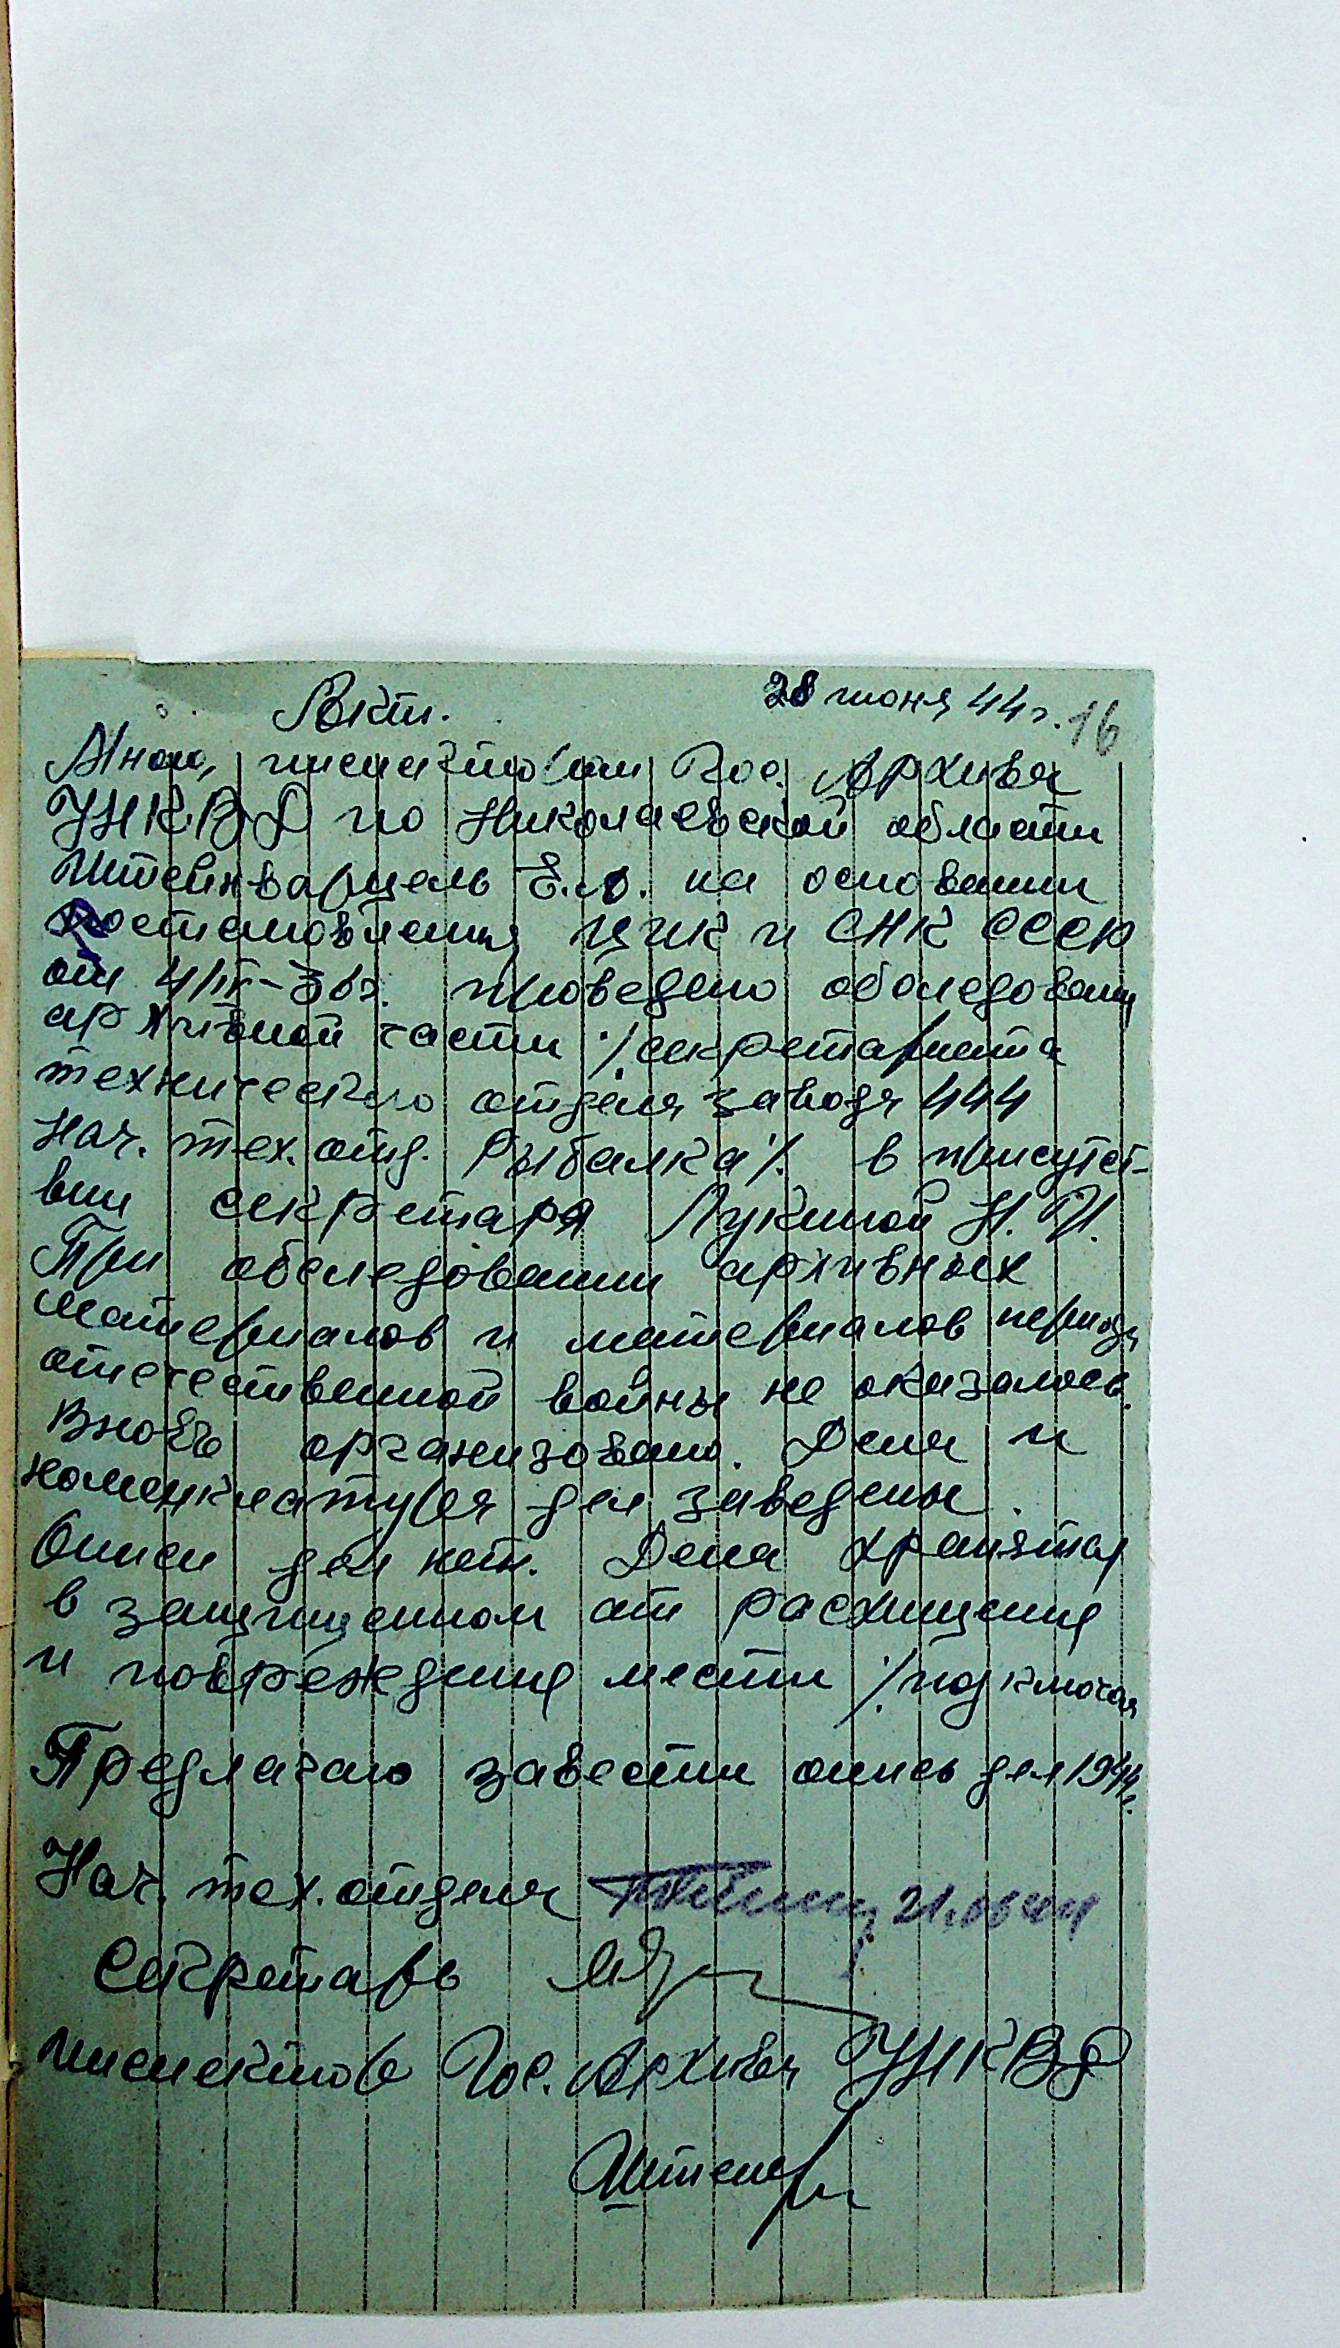 Акт. 28 июня 44 г. 16
Мною, инспектором Гос. Архива
УНКВД по Николаевской области
Штейнварцель Е.О. на основании
Постановления ЦИК и СНК СССР
от 4/IX-36г. проведено обследования
архивной части ·/. секретариата
технического отдела завода 444
Нач. тех. отд. Рыбалка ·/. в присутст-
вии секретаря Лукиной Н. И.
При обследовании архивных
материалов и материалов периода
отечественной войны не оказалось.
Вновь организовано. Дела и
номенклатура дел заведены.
Описи дел нет. Дела хранятся
в защищенном от расхищения
и повреждения месте ·/. под ключом
Предлагаю завести опись дел 1944 г.
Нач. тех. отдела 21.06 44
Секретарь
Инспектор Гос. Архива УНКВД